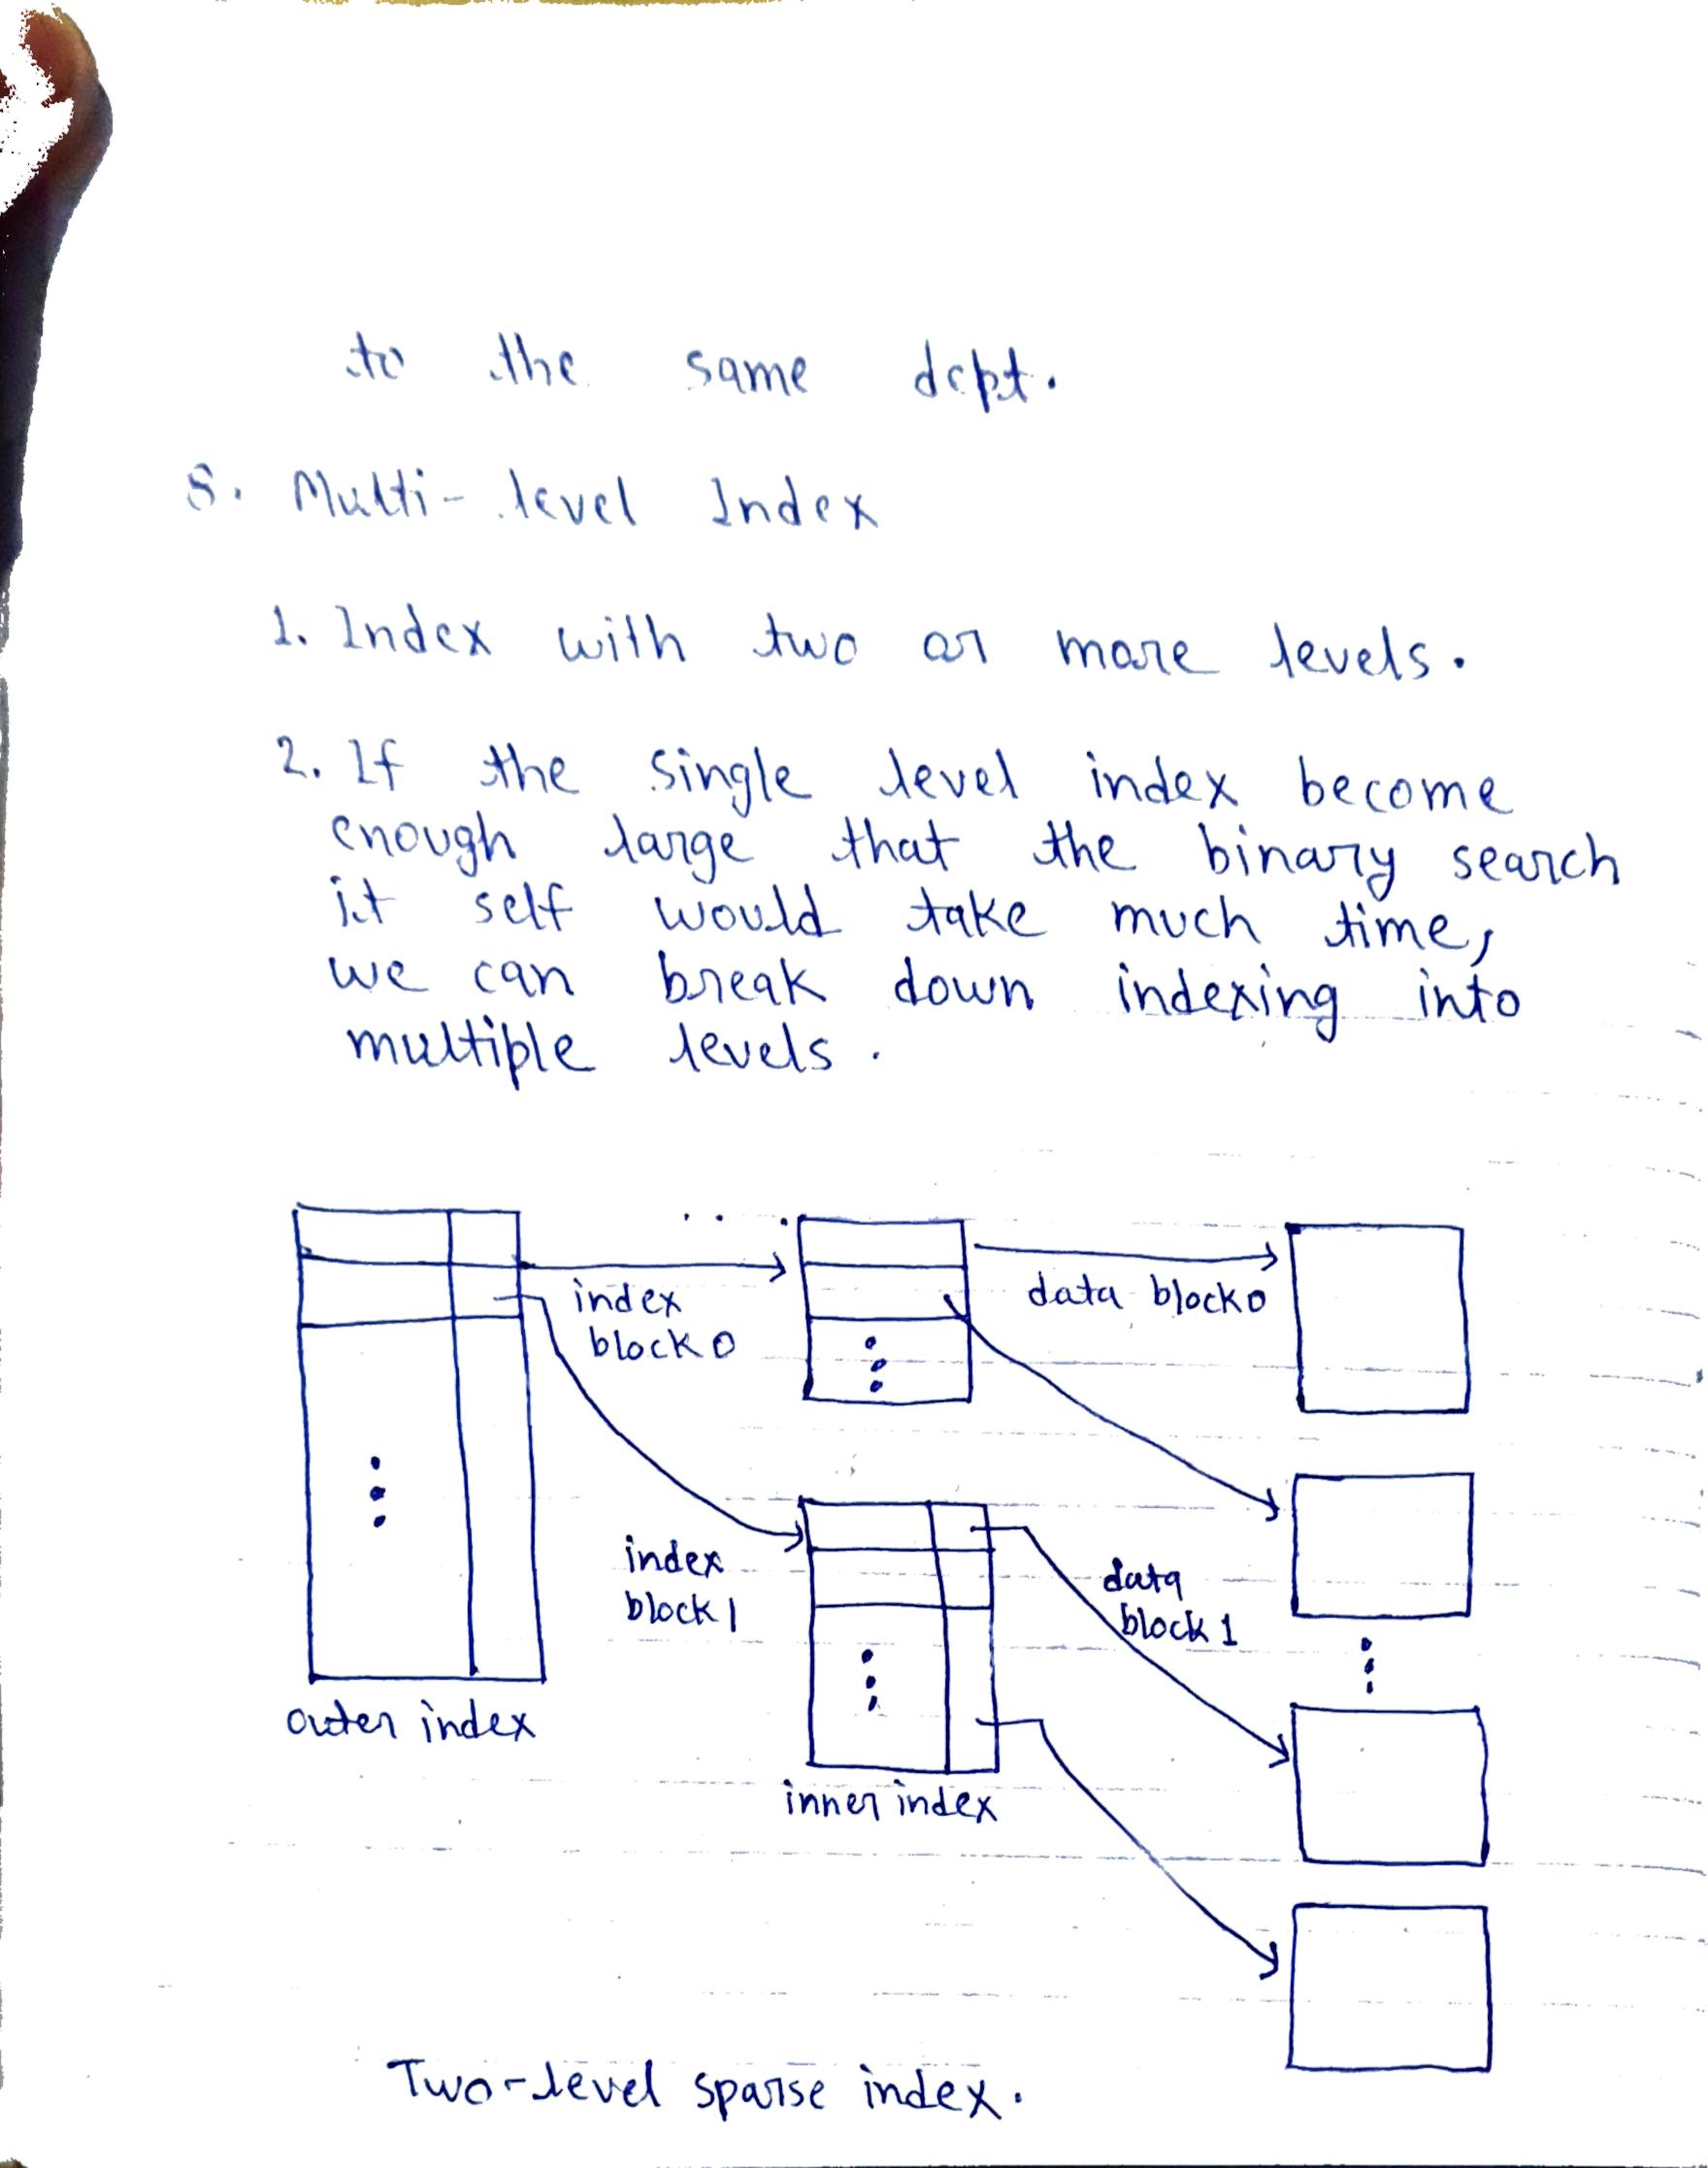 to the same dept.
5. Multi-level Index
1. Index with two or more levels.
2. If the single level index become
enough large that the binary search
it self would take much time,
we can break down indexing into
multiple levels.
index
block 0
data block 0
index
block 1
data
block 1
outer index
inner index
Two-level sparse index.